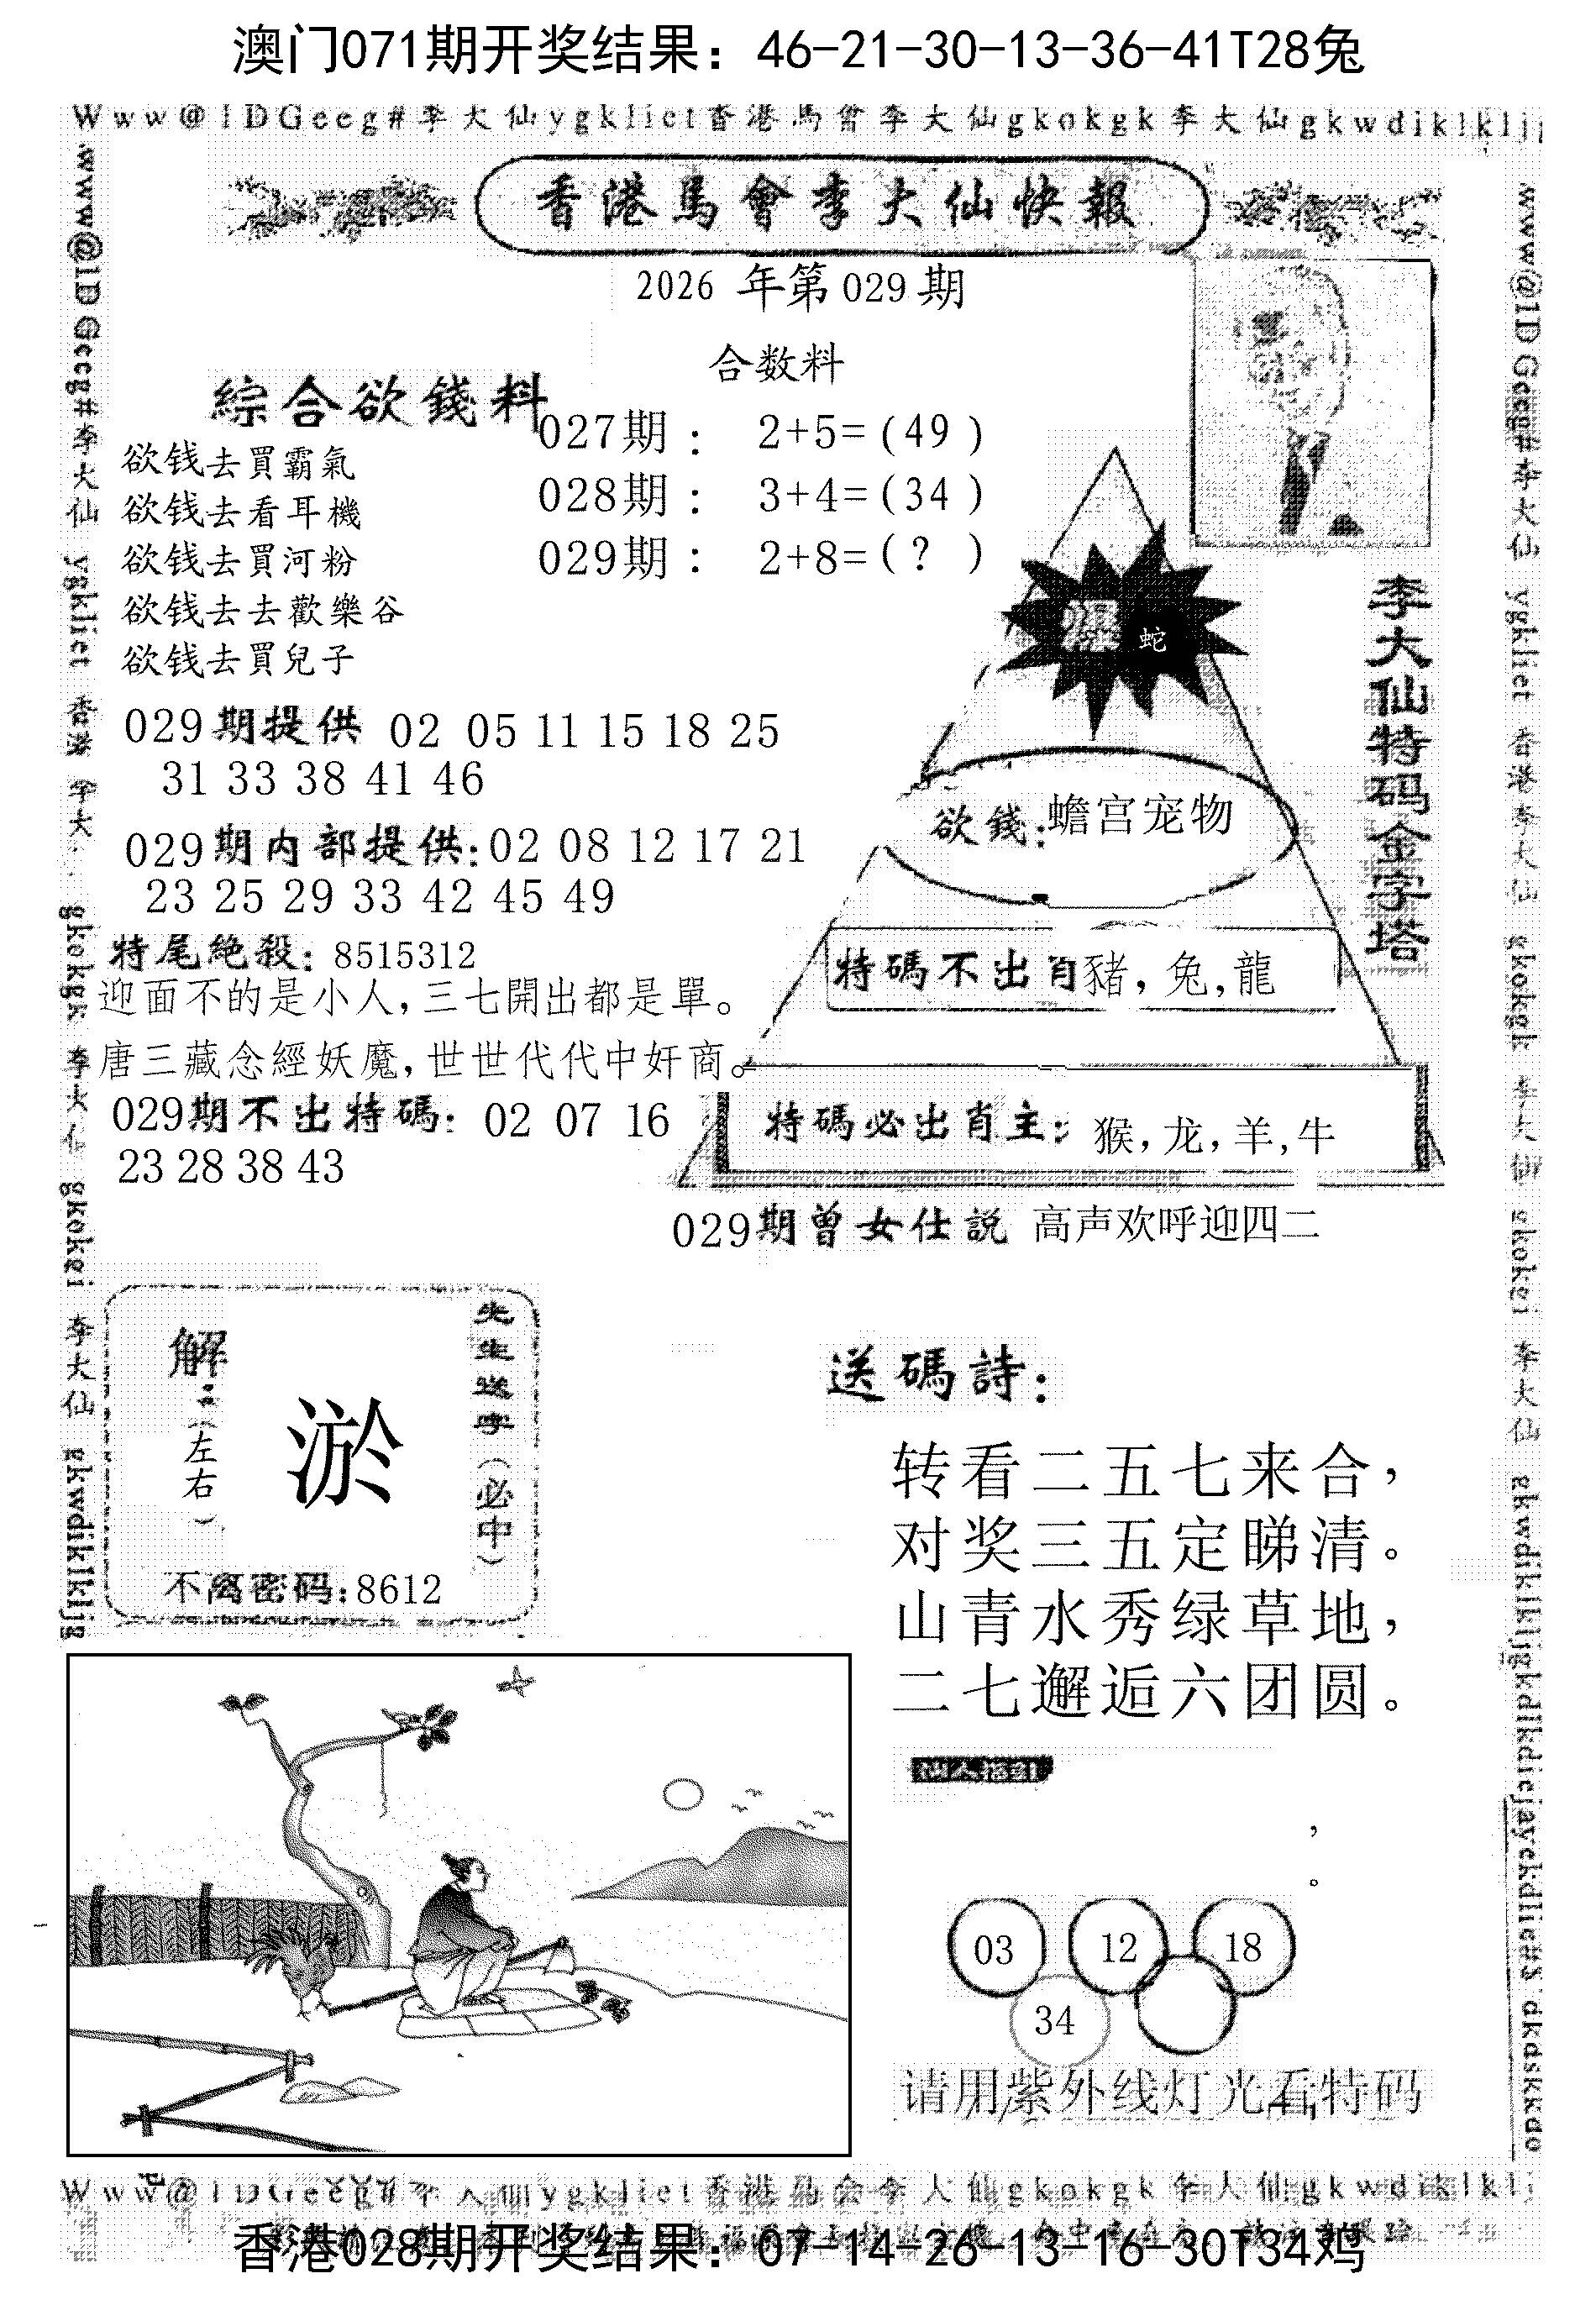 澳门071期开奖结果：46-21-30-13-36-41T28兔
Www@1DGeeg#李大仙ygkliet香港馬會李大仙gkokgk李大仙gkwdiklkljj
香港馬會李大仙快報
2026 年第029期
合数料
綜合欲錢料
027期： 2+5=(49 )
028期： 3+4=(34 )
029期： 2+8=(? )
欲钱去買霸氣
欲钱去看耳機
欲钱去買河粉
欲钱去去歡樂谷
欲钱去買兒子
029期提供 02 05 11 15 18 25
31 33 38 41 46
029期内部提供:02 08 12 17 21
23 25 29 33 42 45 49
特尾絶殺: 8515312
迎面不的是小人,三七開出都是單。
唐三藏念經妖魔,世世代代中奸商。
029期不出特碼: 02 07 16
23 28 38 43
蛇
欲錢:蟾宫宠物
特碼不出肖豬,兔,龍
特碼必出肖主: 猴,龙,羊,牛
李大仙特码金字塔
029期曾女仕説 高声欢呼迎四二
解:(左右)
淤
先生送字(必中)
不离密码:8612
送碼詩:
转看二五七来合，
对奖三五定睇清。
山青水秀绿草地，
二七邂逅六团圆。
仙人指路
，
。
03 12 18
34
请用紫外线灯光看特码
香港028期开奖结果：07-14-26-13-16-30T34鸡